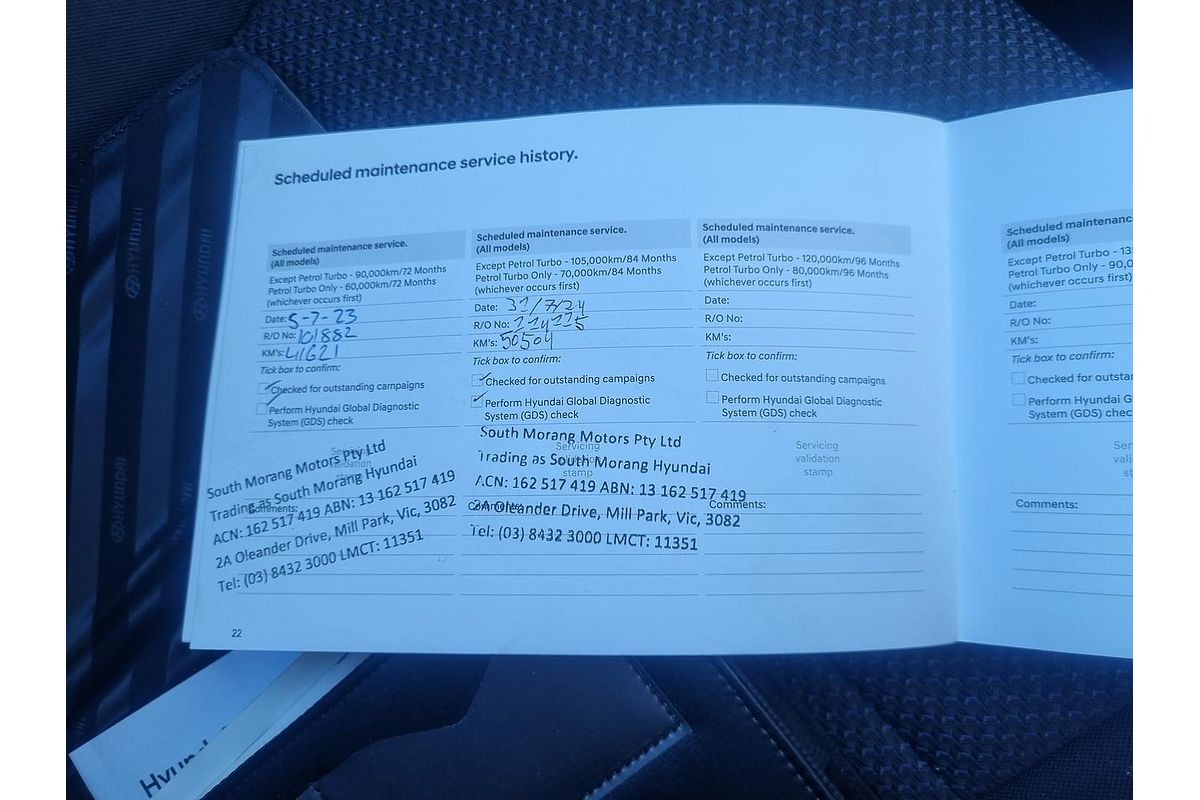 Scheduled maintenance service history.
Scheduled maintenance service.
(All models)
Except Petrol Turbo - 90,000km/72 Months
Petrol Turbo Only - 60,000km/72 Months
(whichever occurs first)
Date: 5-7-23
R/O No: 101882
KM's: 41621
Tick box to confirm:
Checked for outstanding campaigns
Perform Hyundai Global Diagnostic
System (GDS) check
Servicing
validation
stamp
South Morang Motors Pty Ltd
Trading as South Morang Hyundai
ACN: 162 517 419 ABN: 13 162 517 419
2A Oleander Drive, Mill Park, Vic, 3082
Tel: (03) 8432 3000 LMCT: 11351
Comments:
22
Scheduled maintenance service.
(All models)
Except Petrol Turbo - 105,000km/84 Months
Petrol Turbo Only - 70,000km/84 Months
(whichever occurs first)
Date: 31/7/24
R/O No:
KM's: 50504
Tick box to confirm:
Checked for outstanding campaigns
Perform Hyundai Global Diagnostic
System (GDS) check
Servicing
validation
stamp
South Morang Motors Pty Ltd
Trading as South Morang Hyundai
ACN: 162 517 419 ABN: 13 162 517 419
2A Oleander Drive, Mill Park, Vic, 3082
Tel: (03) 8432 3000 LMCT: 11351
Comments:
Scheduled maintenance service.
(All models)
Except Petrol Turbo - 120,000km/96 Months
Petrol Turbo Only - 80,000km/96 Months
(whichever occurs first)
Date:
R/O No:
KM's:
Tick box to confirm:
Checked for outstanding campaigns
Perform Hyundai Global Diagnostic
System (GDS) check
Servicing
validation
stamp
Comments:
Scheduled maintenance
(All models)
Except Petrol Turbo - 13
Petrol Turbo Only - 90,0
(whichever occurs first)
Date:
R/O No:
KM's:
Tick box to confirm:
Checked for outsta
Perform Hyundai G
System (GDS) check
Ser
vali
st
Comments:
HYUNDAI
HYUNDAI
HYUNDAI